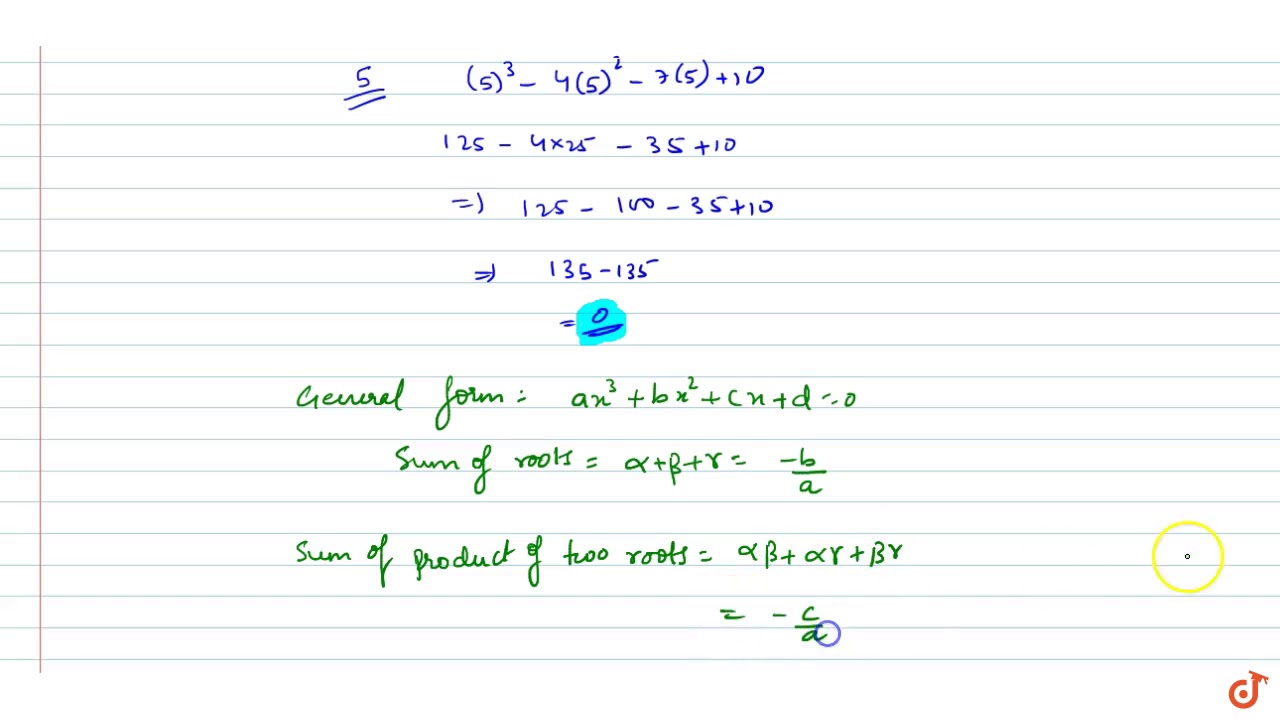 5 (5)³ - 4(5)² - 7(5) + 10
125 - 4×25 - 35 + 10
=) 125 - 100 - 35 + 10
=> 135 - 135
= 0
General form: ax³ + bx² + cx + d = 0
Sum of roots = α + β + γ = -b/a
Sum of product of two roots = αβ + αγ + βγ
= - c/a